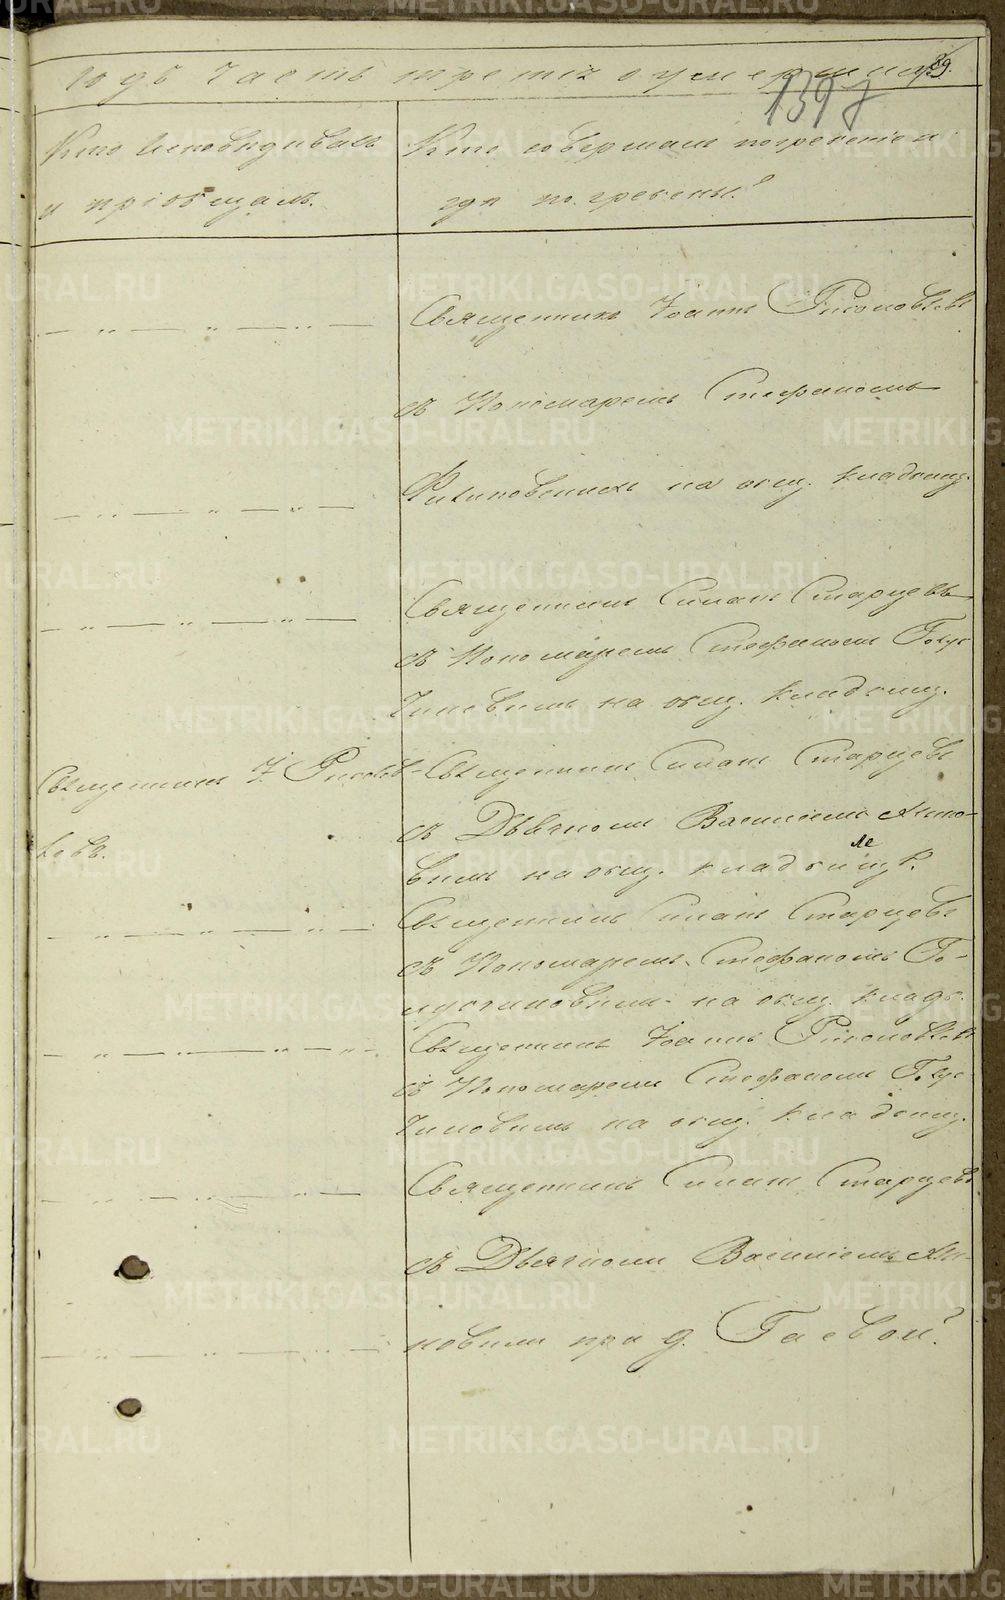 годъ часть третья о умершихъ
89.
1397
Кто исповѣдывалъ
и пріобщалъ.
Кто совершалъ погребеніе и
гдѣ погребены?
Священникъ Іоаннъ
съ Пономаремъ Стефаномъ
на общ. кладбищ.
Священникъ Симеонъ Старцевъ
съ Пономаремъ Стефаномъ Голу-
чиновымъ на общ. кладбищ.
Священникъ І.
Священникъ Симеонъ Старцевъ
съ Дьячкомъ Василіемъ
вымъ на общ. кладбищѣ.
Священникъ Симеонъ Старцевъ
съ Пономаремъ Стефаномъ Го-
на общ. кладб.
Священникъ Іоаннъ
съ Пономаремъ Стефаномъ Голу-
чиновымъ на общ. кладбищ.
Священникъ Симеонъ Старцевъ
съ Дьячкомъ Василіемъ
новымъ при д. Гаевой.
METRIKI.GASO-URAL.RU